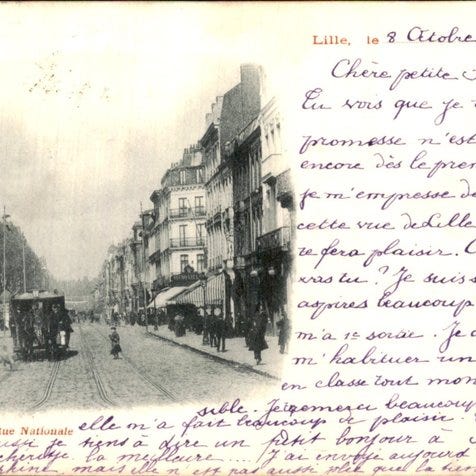 Lille, le 8 Octobre
Chère petite
Tu vois que je
promesse n'est
encore dès le pre
je m'empresse d
cette vue de Lille
te fera plaisir.
vras tu? Je suis
aspires beaucoup
m'a 1e sortie. J
m'habituer un
en classe tout mon
sible. Je remerci beaucoup
Rue Nationale
elle m'a fait beaucoup de plaisir.
ussi je tiens à dire un petit bonjour à
la meilleure J'ai envoyé aujourd
mais elle n'est pas aussi